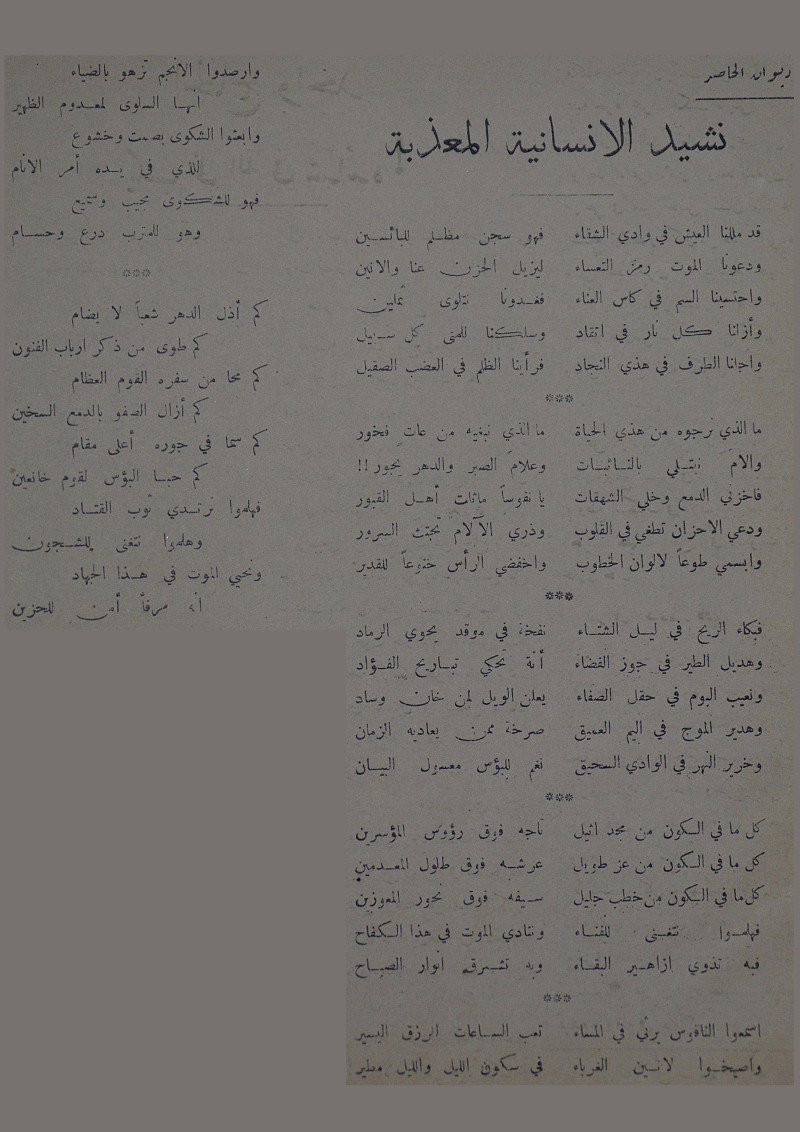 ديوان الحاصد
نشيد الانسانية المعذبة
قد مللنا العيش في وادي الشقاء فهو سجن مظلم للبائسين
ودعونا الموت رمز التعساء ليزيل الحزن عنا والانين
واحتسينا السم في كاس العناء فغدونا نتلوى ثملين
وأزانا كل نار في اتقاد وسلكنا للمنى كل سبيل
واجلنا الطرف في هذي النجاد فرأينا الظلم في العضب الصقيل
***
ما الذي نرجوه من هذي الحياة ما الذي نبغيه من عات فخور
والام نبتلي بالنائبات وعلام الصبر والدهر يجور!!
فاخزني الدمع وخلي الشهقات يا نفوساً ماثلت أهل القبور
ودعي الاحزان تطغي في القلوب وذري الآلام تجتث السرور
وابسمي طوعاً لالوان الخطوب واخفضي الرأس خنوعاً للقدير
***
فبكاء الريح في ليل الشتاء نفخة في موقد يحوي الرماد
وهديل الطير في جوز الفضاء أنة تحكي تباريح الفؤاد
ونعيب البوم في حقل الصفاء يعلن الويل لمن خان وساد
وهدير الموج في اليم العميق صرخة ممن يعاديه الزمان
وخرير النهر في الوادي السحيق نغم للبؤس معسول البيان
***
كل ما في الكون من مجد اثيل تاجه فوق رؤوس المؤسرين
كل ما في الكون من عز طويل عرشه فوق طلول المعدمين
كل ما في الكون من خطب جليل سيفه فوق نحور المعوزين
فهلموا نتغنى للفناء وننادي الموت في هذا الكفاح
فبه تذوي ازاهير البقاء وبه تشرق انوار الصباح
***
اسمعوا الناقوس يرثي في المساء تعب الساعات الرزق اليسير
واصيخوا لانين الغرباء في سكون الليل والليل مطير
وارصدوا الانجم تزهو بالضياء
انها السلوى لمعدوم الظهير
وابعثوا الشكوى بصمت وخشوع
للذي في يده أمر الانام
فهو للشكوى مجيب وسميع
وهو للترب درع وحسام
***
كم أذل الدهر شعباً لا يضام
كم طوى من ذكر ارباب الفنون
كم محا من سفره القوم العظام
كم أزال الصفو بالدمع السخين
كم سما في جوره أعلى مقام
كم حبا البؤس لقوم خانعين
فهلموا نرتدي ثوب القتاد
وهلموا نتغنى للشجون
ونحيي الموت في هذا الجهاد
انه مرفأ أمن للحزين